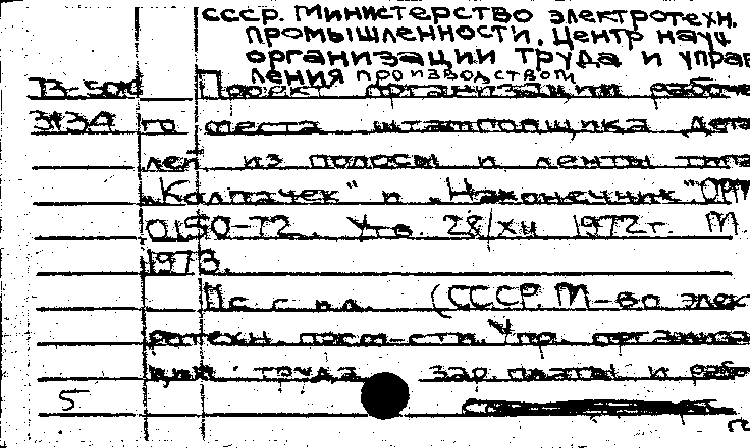 СССР. Министерство электротехн.
промышленности. Центр науч
организации труда и управ
ления производством
Проект организации рабоче
го места штамповщика дета
лей из полосы и ленты типа
„Колпачек" и „Наконечник". ОРМ
0150-72. Утв. 28/XII 1972г. М.
1973.
с с ил. (СССР. М-во элек
ротехн. пром-сти. Упр. организа
ции труда зар. платы и рабо
5